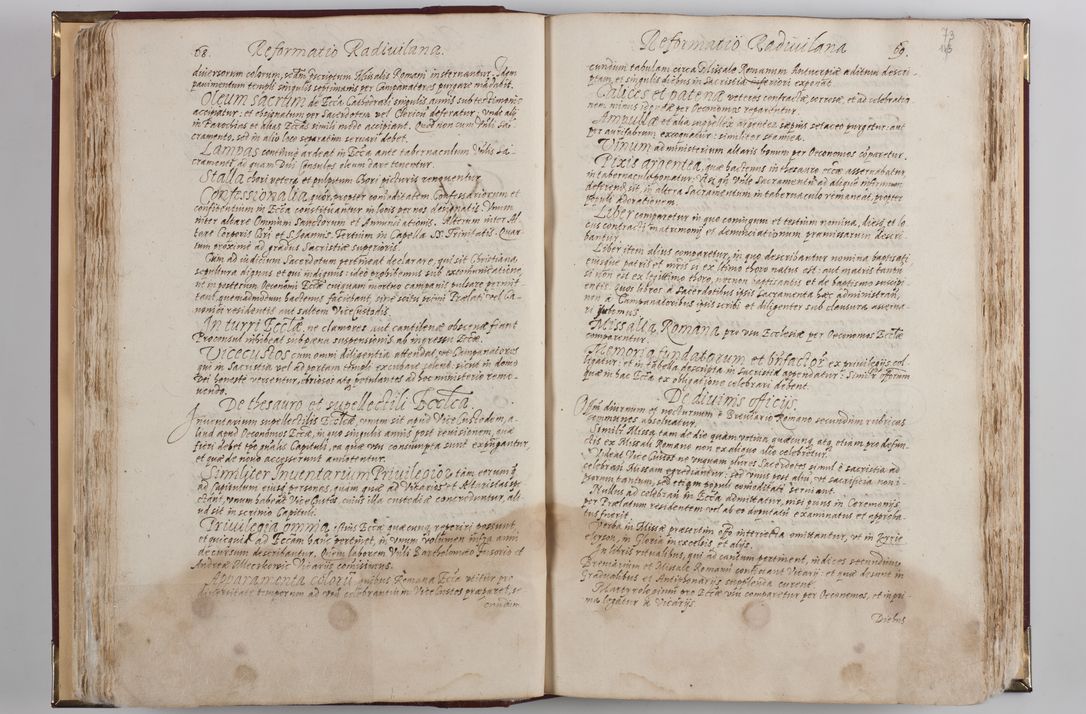 68. Reformatio Radiuilana.
diuersorum colorum, scdm pscriptum Missalis Romani insternantur. Idem
pauimentum templi singulis septimanis per Campanatores purgare mandabit.
Oleum sacrum de Eccla Cathedrali singulis annis sub testimonio
accipiatur: et consignatum per Sacerdotem vel Clericum deferatur, unde alij
in Parochijs et alias Ecclias simili modo accipiant. Quod non cum Vnli Sa-
cramento, sed in alio loco separatim seruari debet.
Lampas continue ardeat in Eccla ante tabernaculum Vnlis Sa-
cramenti, ad quam Dni Consules oleum dare tenentur.
Stalla chori vetera et pulpitum Chori picturis renouentur.
Confessionalia quor, propter comoditatem Confessariorum et
confitentium in Eccla constituantur in locis per nos designatis. Vnum
inter altare Omnium Sanctorum et Annunciationis. Alterum inter Al-
tare Corporis Xri et S. Joannis. Tertium in Capella SS. Trinitatis. Quar-
tum proxime ad gradus Sacristiae superioris.
Cum ad iudicium Sacerdotum pertineat declarare, qui sit Christiana
sepultura dignus et qui indignus: ideo prohibemus sub excommunicatione,
ne in posterum Oeconomi Ecclae cuiquam mortuo campanis pulsare permit-
tant, quemadmodum hactenus faciebant, sine scitu vicini Praelati vel Ca-
nonici residentis aut saltem ViceCustodis.
In turri Ecclae, ne clamores aut cantilenae obscenae fiant
Proconsul inhibeat sub paena suspensionis ab ingressu Ecclae.
Vicecustos cum omni diligentia attendat, ut Campanatores
qui in Sacristia vel ad portam templi excubare solent, sicut in domo
Dei honeste versentur, ebriosos atq petulantes ad hoc ministerio remo-
uendo.
De thesauro et supellectili Ecclica.
Inuentarium supellectilis Ecclicae, vnum sit apud ViceCustodem, a-
liud apud Oeconomos Ecclae, in quo singulis annis post reuisionem, quae
fieri debet tpe gnalis Capituli, ea quae vsu consumpta sunt expungantur,
et quae de nouo accesserunt annotentur.
Similiter Inuentarium Privilegior, tam eorum q
ad Capitulum eiusq personas, quam quae ad Vicarios et Altaristas spe-
ctant, vnum habeat ViceCustos cuius illa custodiae concreduntur, ali-
ud sit in scrinio Capituli.
Priuilegia omnia, huius Ecclae quaecunq reperiri possunt,
et quicquid ad Ecclam hanc pertinet, in vnum volumen infra anni
decursum describantur. Quem laborem Vnli Bartholomaeo et
Andreae Miechowic Vicarijs comisimus.
Apparamenta coloru, quibus Romana Eccla vtitur pro
diuersitate temporum ad vsum celebrantium ViceCustos praeparet, se-
cundum
Reformatio Radiuilana 69.
73
cundum tabulam circa Missale Romanum Antuerpiae aeditum descri-
ptam, et singulis diebus in Sacristia inferiori exponat.
Calices et patenae veteres confractae, corrosae, et ad celebratio-
nem minus idoneae per Oeconomos reparentur.
Ampullae et alia supellex argentea saepius setaceo purgetur: aut
per aurifabrum excoquatur: similiter stamea.
Vinum ad ministerium altaris bonum per Oeconomos coparetur.
Pixis argentea, quae hactenus in thesauro eccae asseruabatur,
in tabernaculo ponatur. Vt qn Vnle Sacramentu ad aliquem infirmum
deferend sit, in altera Sacramentum in tabernaculo remaneat, propter
populi adorationem.
Liber comparetur in quo coniugum et testium nomina, dies, et lo-
cus contracti matrimonij et denunciationum praemissarum descri-
bantur.
Liber item alius comparetur, in quo describantur nomina baptisati,
eiusque patris et mris si ex ltimo thoro natus est: aut matris tantu
si non est ex legittimo thoro, necnon baptisantis et de baptismo suscipi-
entis. Quos libros a Sacerdotibus ipsis Sacramenta haec administran,
non a Campanatoribus ipsis scribi et diligenter sub clausura asserua-
ri iubemus.
Missalia Romana pro vsu Ecclesiae per Oeconomos Ecclae
comparentur.
Memoria fundatorum et bnfactor ex priuilegijs col-
ligatur: et in tabella descripta in Sacristia appendatur: Similr offorum
quae in hac Eccla ex obligatione celebrari debent.
De diuinis officijs.
Offm diurnum et nocturnum e Breuiario Romano secundum rubricas
communes absoluatur.
Similr Missa tam de die quam votiua quaecunq, atq etiam pro defun-
ctis ex Missali Romano non ex alio quo celebretur.
Videat ViceCustos ne vnquam plures Sacerdotes simul e sacristia ad
celebran Missam egrediantur: sed vnus post aliu, vt sacrificia non i-
psorum tantum, sed etiam populi comoditati seruiant.
Nullus ad celebran in Eccla admittatur, nisi prius in Ceremonijs
per Praelatum residentem vel ab eo deputatu examinatus et approba-
tus fuerit.
Verba in Missa praesertim offo interiecta omittantur, vt in Kyrie
eleyson, in Gloria in excelsis et alijs.
In libris ritualibus, qui ad cantum pertinent, indices secundum
Breuiarium et Missale Romanu conficiant Vicarij: et quae desunt in
Gradualibus et Antiphonarijs emendan curent.
Martyrologium pro Ecclae vsu comparetur per Oeconomos, et in pri-
ma legatur a Vicarijs.
Diebus